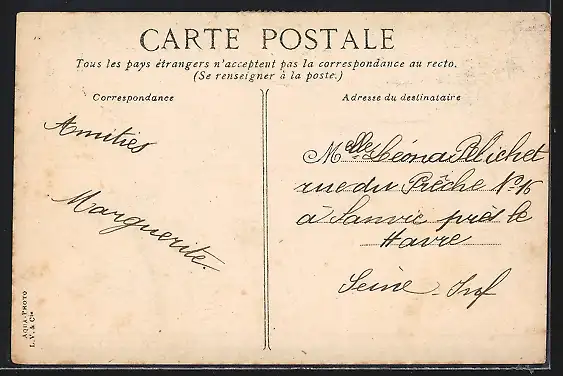 CARTE POSTALE
Tous les pays étrangers n'acceptent pas la correspondance au recto.
(Se renseigner à la poste.)
Correspondance
Adresse du destinataire
Amitiés
Marguerite.
Melle Léona
rue du Prêche No 16
à Sanvic près le
Havre
Seine-Inf
AQUA-PHOTO
L. V. & Cie